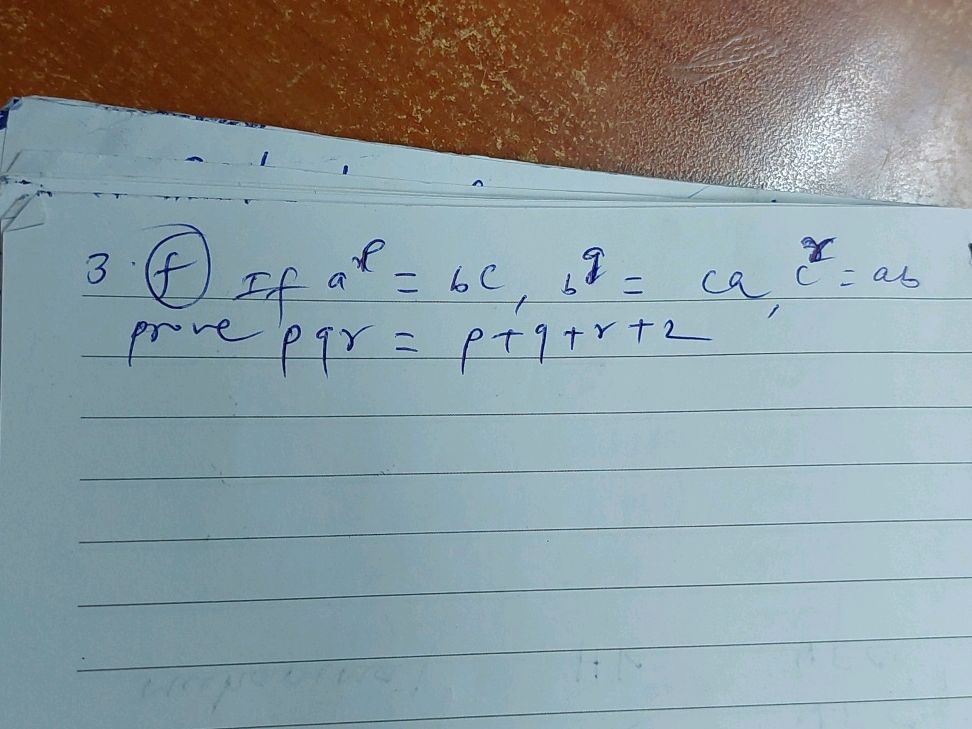 3. (f) If a^p = bc, b^q = ca, c^r = ab
prove pqr = p+q+r+2